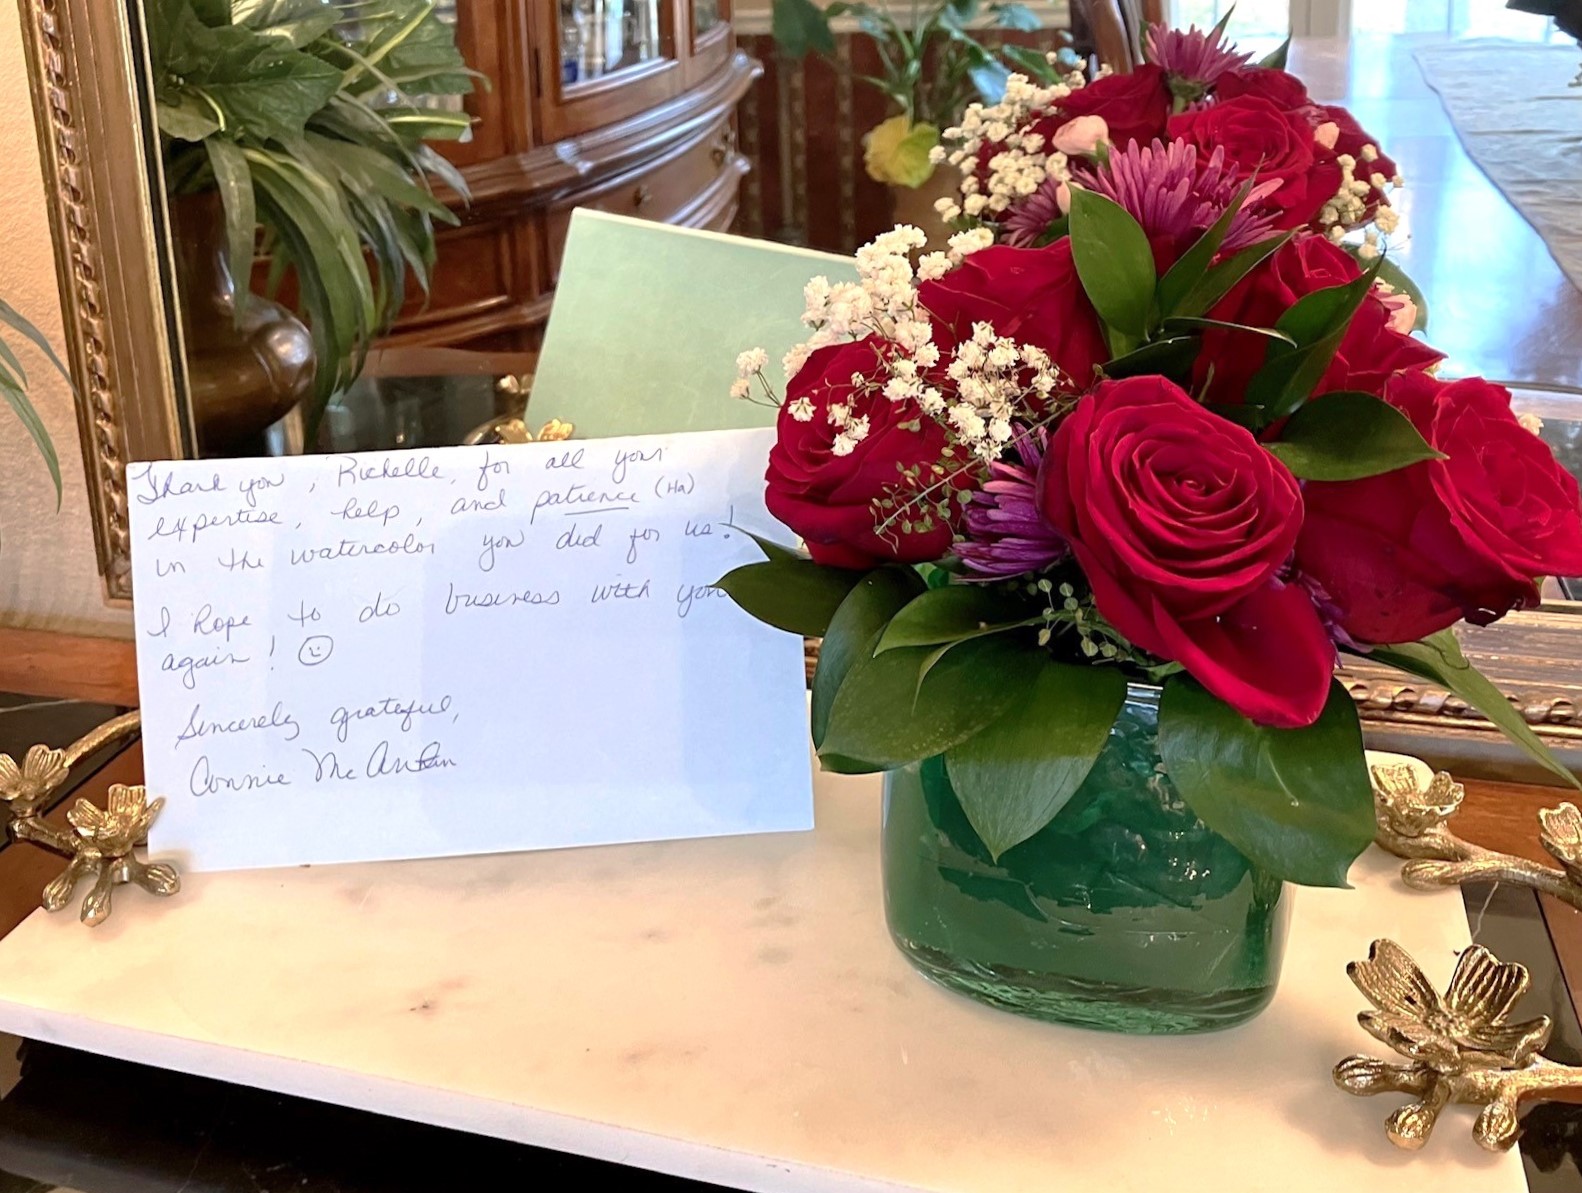 Thank you, Richelle, for all your
expertise, help, and patience (Ha)
in the watercolor you did for us!
I hope to do business with you
again! ☺
Sincerely grateful,
Connie Mc